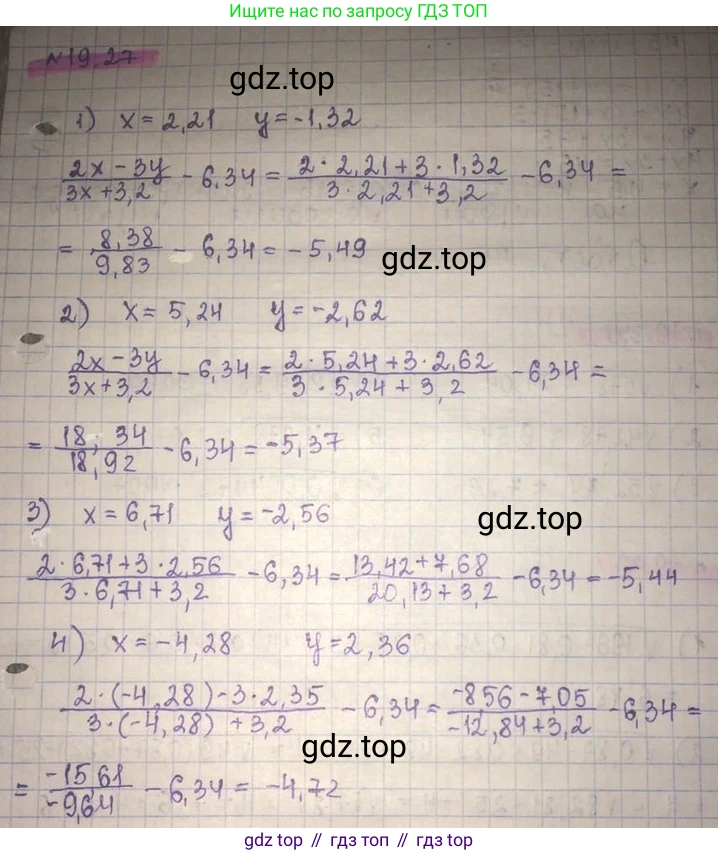 Ищите ответы по запросу ГДЗ ТОП
№19.27
gdz.top
1) x = 2,21 y = -1,32
(2x - 3y)/(3x + 3,2) - 6,34 = (2 · 2,21 + 3 · 1,32)/(3 · 2,21 + 3,2) - 6,34 =
= 8,38/9,83 - 6,34 = - 5,49
gdz.top
2) x = 5,24 y = -2,62
(2x - 3y)/(3x + 3,2) - 6,34 = (2 · 5,24 + 3 · 2,62)/(3 · 5,24 + 3,2) - 6,34 =
= 18,34/18,92 - 6,34 = -5,37
3) x = 6,71 y = -2,56
gdz.top
(2 · 6,71 + 3 · 2,56)/(3 · 6,71 + 3,2) - 6,34 = (13,42 + 7,68)/(20,13 + 3,2) - 6,34 = -5,44
4) x = -4,28 y = 2,36
(2 · (-4,28) - 3 · 2,35)/(3 · (-4,28) + 3,2) - 6,34 = (-856 - 7,05)/(-12,84 + 3,2) - 6,34 =
gdz.top
= -15,61/-9,64 - 6,34 = -4,72
gdz.top // гдз топ // гдз.топ